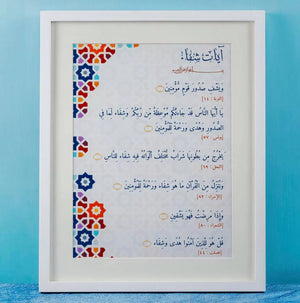 آيات شفاء
ويشف صدور قوم مؤمنين
[التوبة: ١٤]
يا أيها الناس قد جاءتكم موعظة من ربكم وشفاء لما في
الصدور وهدى ورحمة للمؤمنين
[يونس: ٥٧]
يخرج من بطونها شراب مختلف ألوانه فيه شفاء للناس
[النحل: ٦٩]
وننزل من القرآن ما هو شفاء ورحمة للمؤمنين
[الإسراء: ٨٢]
وإذا مرضت فهو يشفين
[الشعراء: ٨٠]
قل هو للذين آمنوا هدى وشفاء
[فصلت: ٤٤]